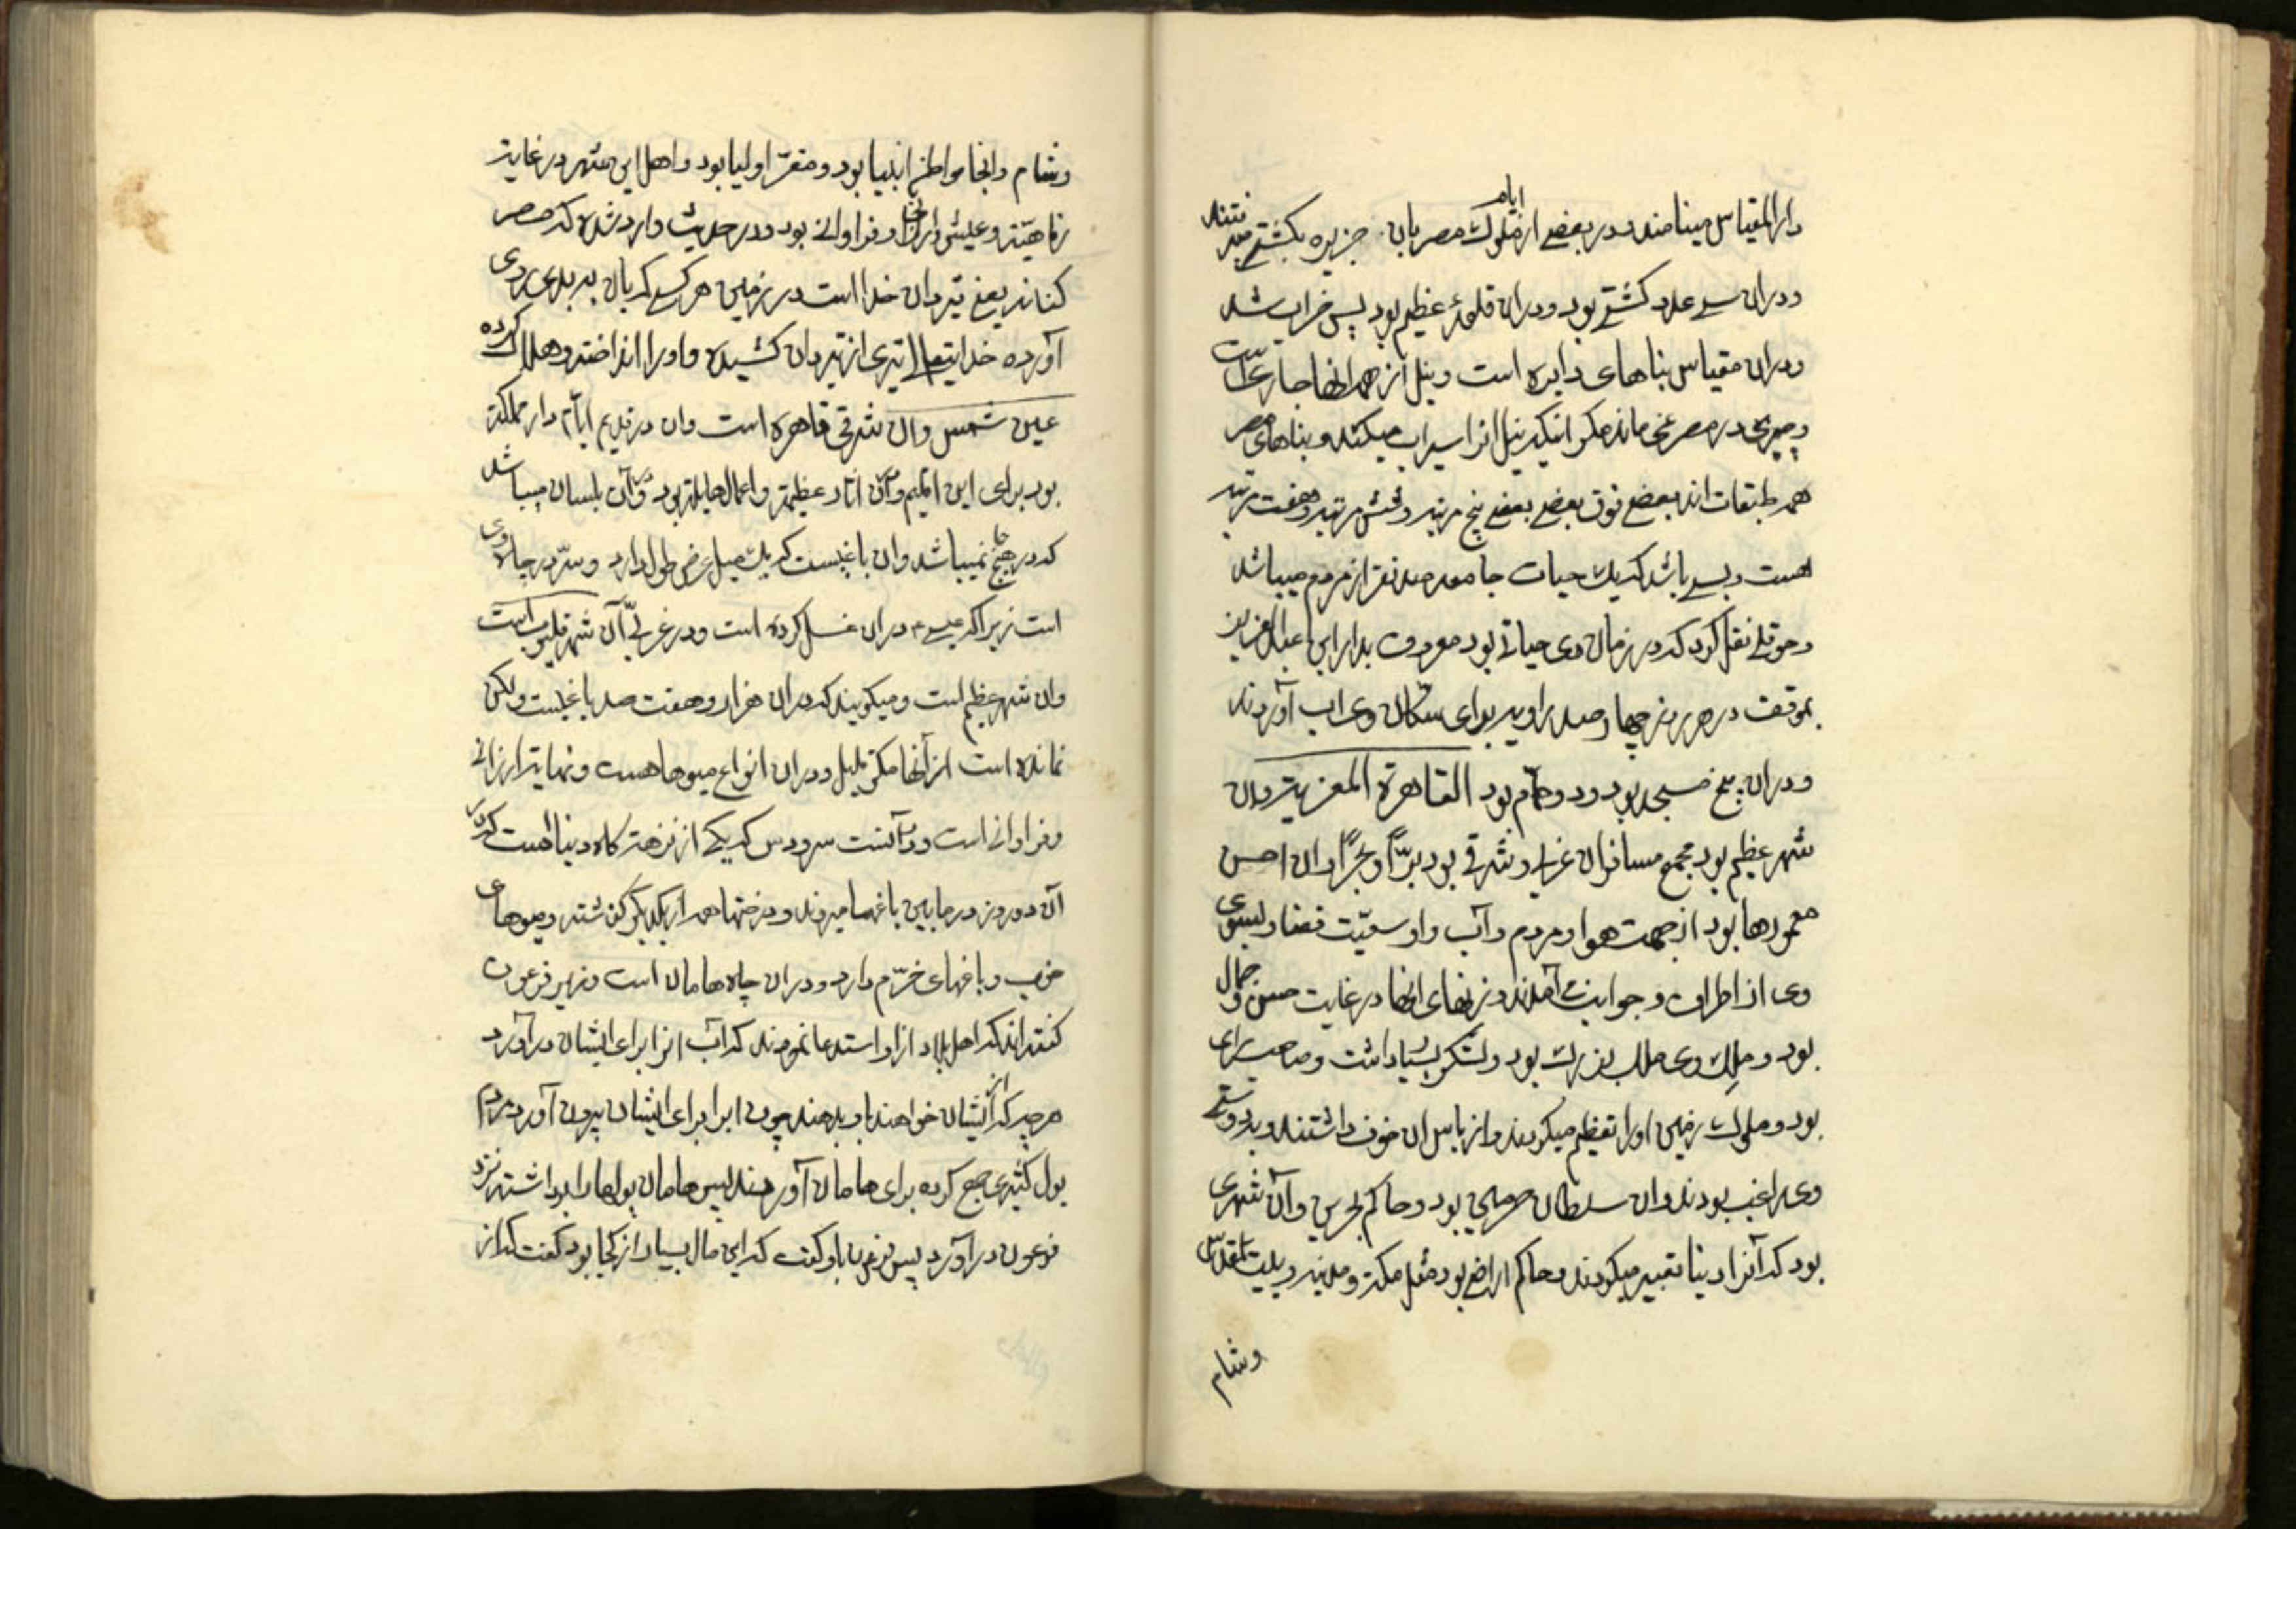 دارالمقیاس مینامند و در بعضی از ایام ملوک مصر بان جزیره بکشتی میرفتند
و دران سی عدد کشتی بود و دران قلعهٔ عظیم بود پس خراب شد
و دران مقیاس بناهای دایره است و نیل از همه انها جاریست
و چیزی در مصر نمی ماند مکر اینکه نیل انرا سیراب میکند و بناهای مصر
همه طبقات اند بعضی فوق بعضی بعضی پنج مرتبه و شش مرتبه و هفت مرتبه
هست و بسی باشد که یک حیات جامعه صد نفر از مردم میباشد
و حوقلی نقل کرد که در زمان وی حیاتی بود معروف بدار ابن عبدالعزیز
بموقف در هر روز چهار صد راویه برای سکان وی اب آوردند
و دران پنج مسجد بود و دو حمام بود القاهرة المعزیة و ان
شهر عظیم بود مجمع مسافران غربی و شرقی بود برّاً و بحراً و ان احسن
معمورها بود از جهت هوا و مردم و آب و او سعیّت فضا و بسوی
وی از اطراف و جوانب می آمدند و زنهای انها در غایت حسن و جمال
بود و ملک وی ملک بزرک بود و لشکر بسیار داشت و صاحب رای
بود و ملوک زمین او را تعظیم میکردند و از باس ان خوف داشتند و بدوستی
وی راغب بودند و ان سلطان حرمین بود و حاکم بحرین و آن شهری
بود که آنرا دنیا تعبیر میکردند و حاکم اراضی بود مثل مکه و مدینه و بیت المقدس
وشام
وشام و انجا مواطن انبیا بود و مقرّ اولیا بود و اهل این شهر در غایت
رفاهیّت و عیش و ارزانی و فراوانی بود و در حدیث وارد شده که مصر
کنانه یعنی تیردان خدا است در زمین هر کسی که بان به بدی روی
آورده خدایتعالی تیری از تیردان کشیده و او را انداخته و هلاک کرده
عین شمس و ان شرقی قاهره است و ان در قدیم ایام دار مملکة
بود برای این اقلیم و دران اثار عظیمه و اعمال هایله بود و در آن بلسان میباشد
که در هیچ جا نمیباشد و ان باغیست که یک میل عرض و طول دارد و سرّ در چاه وی
است زیرا که عیسی ع دران غسل کرده است و در غربی آن شهر قلیوب است
و ان شهر عظیم است و میکویند که دران هزار و هفت صد باغیست ولکن
نمانده است از آنها مکر قلیل و دران انواع میوها هست و نهایت ارزانی
و فراوانی است و در آنست سردوس که یکی از نزهت کاه دنیا است که در
آن دو روز در مابین باغها میروند و درختها همه از یکدیکر کذشته و میوهای
خوب و باغهای خرّم دارد و دران چاه هامان است وزیر فرعون
کفته اند که اهل بلاد از او استدعا نمودند که آب انرا برای ایشان درآورد
هر چه که از ایشان خواهند باو بدهند چون اب را برای ایشان بیرون آورد مردم
پول کثیری جمع کرده برای هامان آوردند پس هامان پولها را برداشته نزد
فرعون دراورد پس فرعون باو کفت که این مال بسیار از کجا بود کفت که از